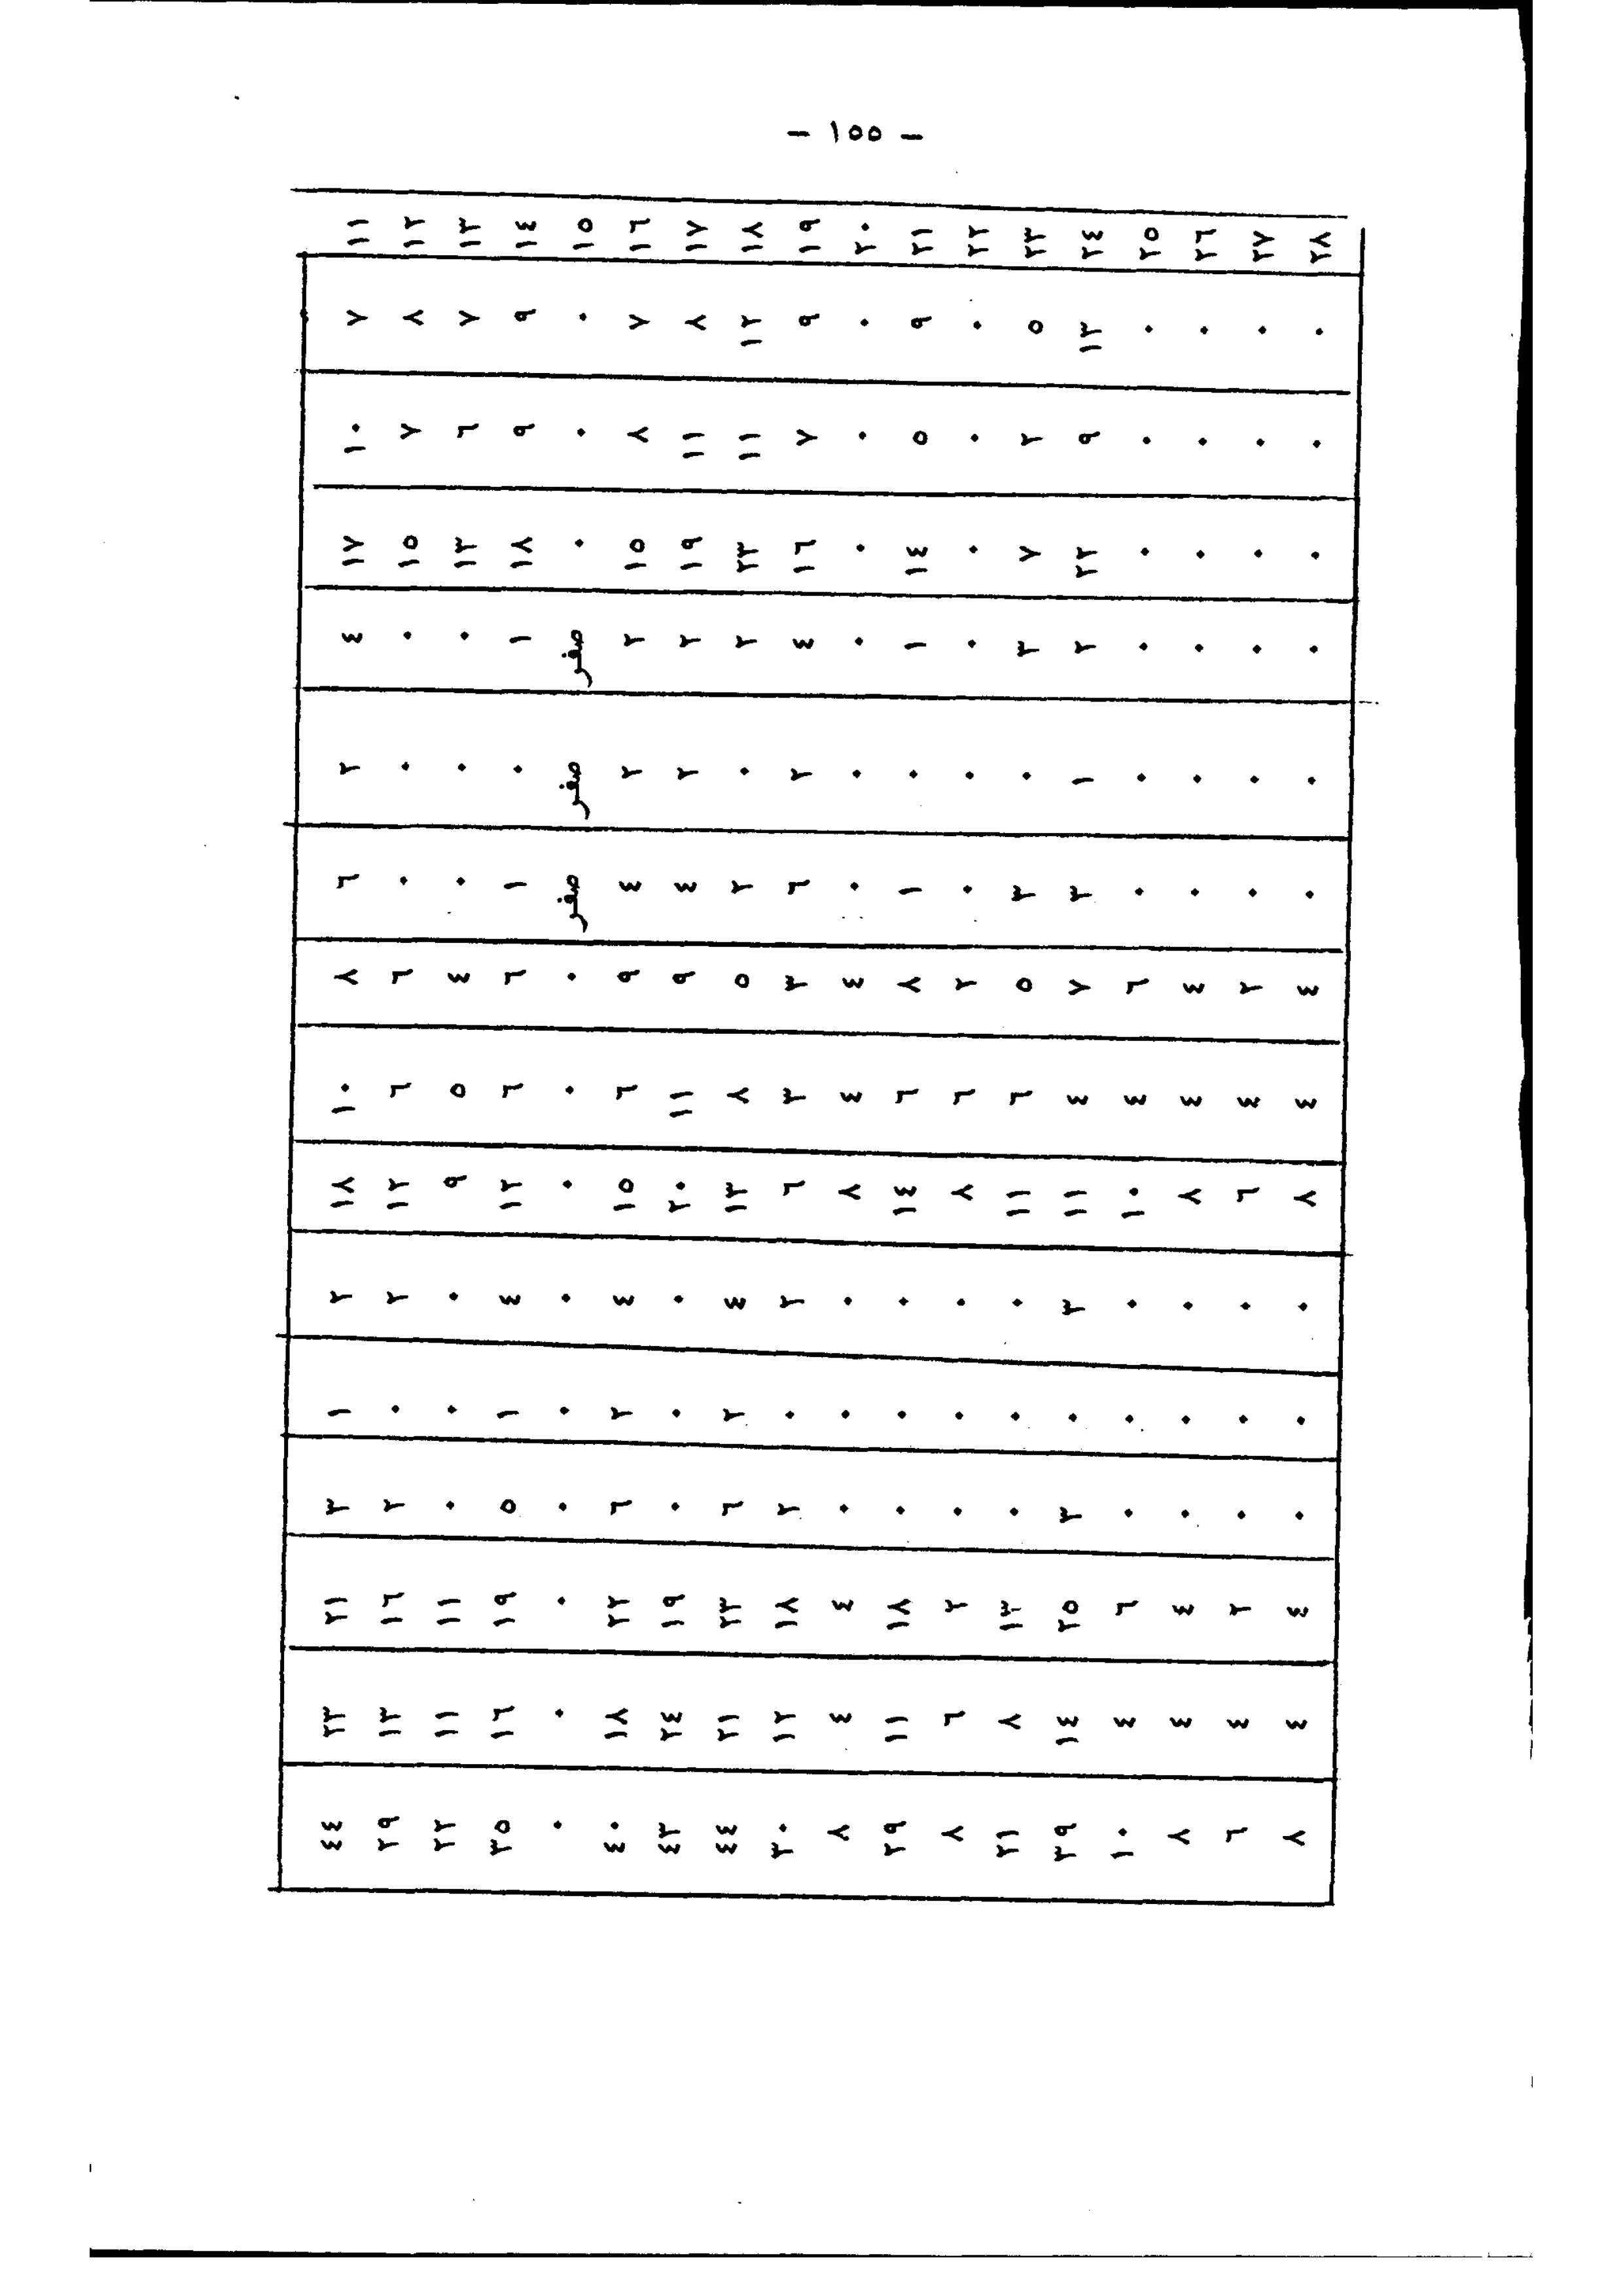 - ١٥٥ -
١١ ٧ ١٠ ١٧ ٤ ٢ ٦ ٨ ١٠ ١٨ ٢ ١ ٣ ٢١ ٢٣ ٤٤
١٢ ٨ ٧ ١٥ ٠ ٠ ٠ ٦ ٦ ١٢ ٢ ٠ ٢ ١٦ ١٣ ٢٩
١٣ ٧ ٦ ١٣ ٠ ٠ ٠ ٤ ٥ ٩ ٠ ٠ ٠ ١١ ١١ ٢٢
١٤ ٩ ٩ ١٨ ١ ٠ ١ ٦ ٦ ١٢ ٤ ١ ٥ ١٩ ١٦ ٣٥
١٥ ٠ ٠ ٠ صفر صفر صفر ٠ ٠ ٠ ٠ ٠ ٠ ٠ ٠ ٠
١٦ ٧ ٨ ١٥ ٢ ٢ ٤ ٩ ٦ ١٥ ٤ ٢ ٦ ٢٢ ١٨ ٤٠
١٧ ٨ ١١ ١٩ ٢ ٢ ٤ ٩ ١١ ٢٠ ٠ ٠ ٠ ١٩ ٢٤ ٤٣
١٨ ١٢ ١١ ٢٣ ٢ ٠ ٢ ٥ ٨ ١٣ ٤ ٢ ٦ ٢٣ ٢١ ٤٤
١٩ ٩ ٧ ١٦ ٤ ٢ ٦ ٣ ٣ ٦ ٢ ٠ ٢ ١٨ ١٢ ٣٠
٢٠ ٠ ٠ ٠ ٠ ٠ ٠ ٤ ٤ ٨ ٠ ٠ ٠ ٤ ٤ ٨
٢١ ٩ ٥ ١٤ ١ ٠ ١ ٨ ٦ ١٤ ٠ ٠ ٠ ١٨ ١١ ٢٩
٢٢ ٠ ٠ ٠ ٠ ٠ ٠ ٢ ٦ ٨ ٠ ٠ ٠ ٢ ٦ ٨
٢٣ ٥ ٢ ٧ ٣ ٠ ٣ ٥ ٦ ١١ ٠ ٠ ٠ ١٣ ٨ ٢١
٢٤ ١٣ ٩ ٢٢ ٢ ١ ٣ ٧ ٤ ١١ ٣ ٠ ٣ ٢٥ ١٤ ٣٩
٢٥ ٠ ٠ ٠ ٠ ٠ ٠ ٦ ٤ ١٠ ٠ ٠ ٠ ٦ ٤ ١٠
٢٦ ٠ ٠ ٠ ٠ ٠ ٠ ٤ ٤ ٨ ٠ ٠ ٠ ٤ ٤ ٨
٢٧ ٠ ٠ ٠ ٠ ٠ ٠ ٢ ٤ ٦ ٠ ٠ ٠ ٢ ٤ ٦
٢٨ ٠ ٠ ٠ ٠ ٠ ٠ ٤ ٤ ٨ ٠ ٠ ٠ ٤ ٤ ٨